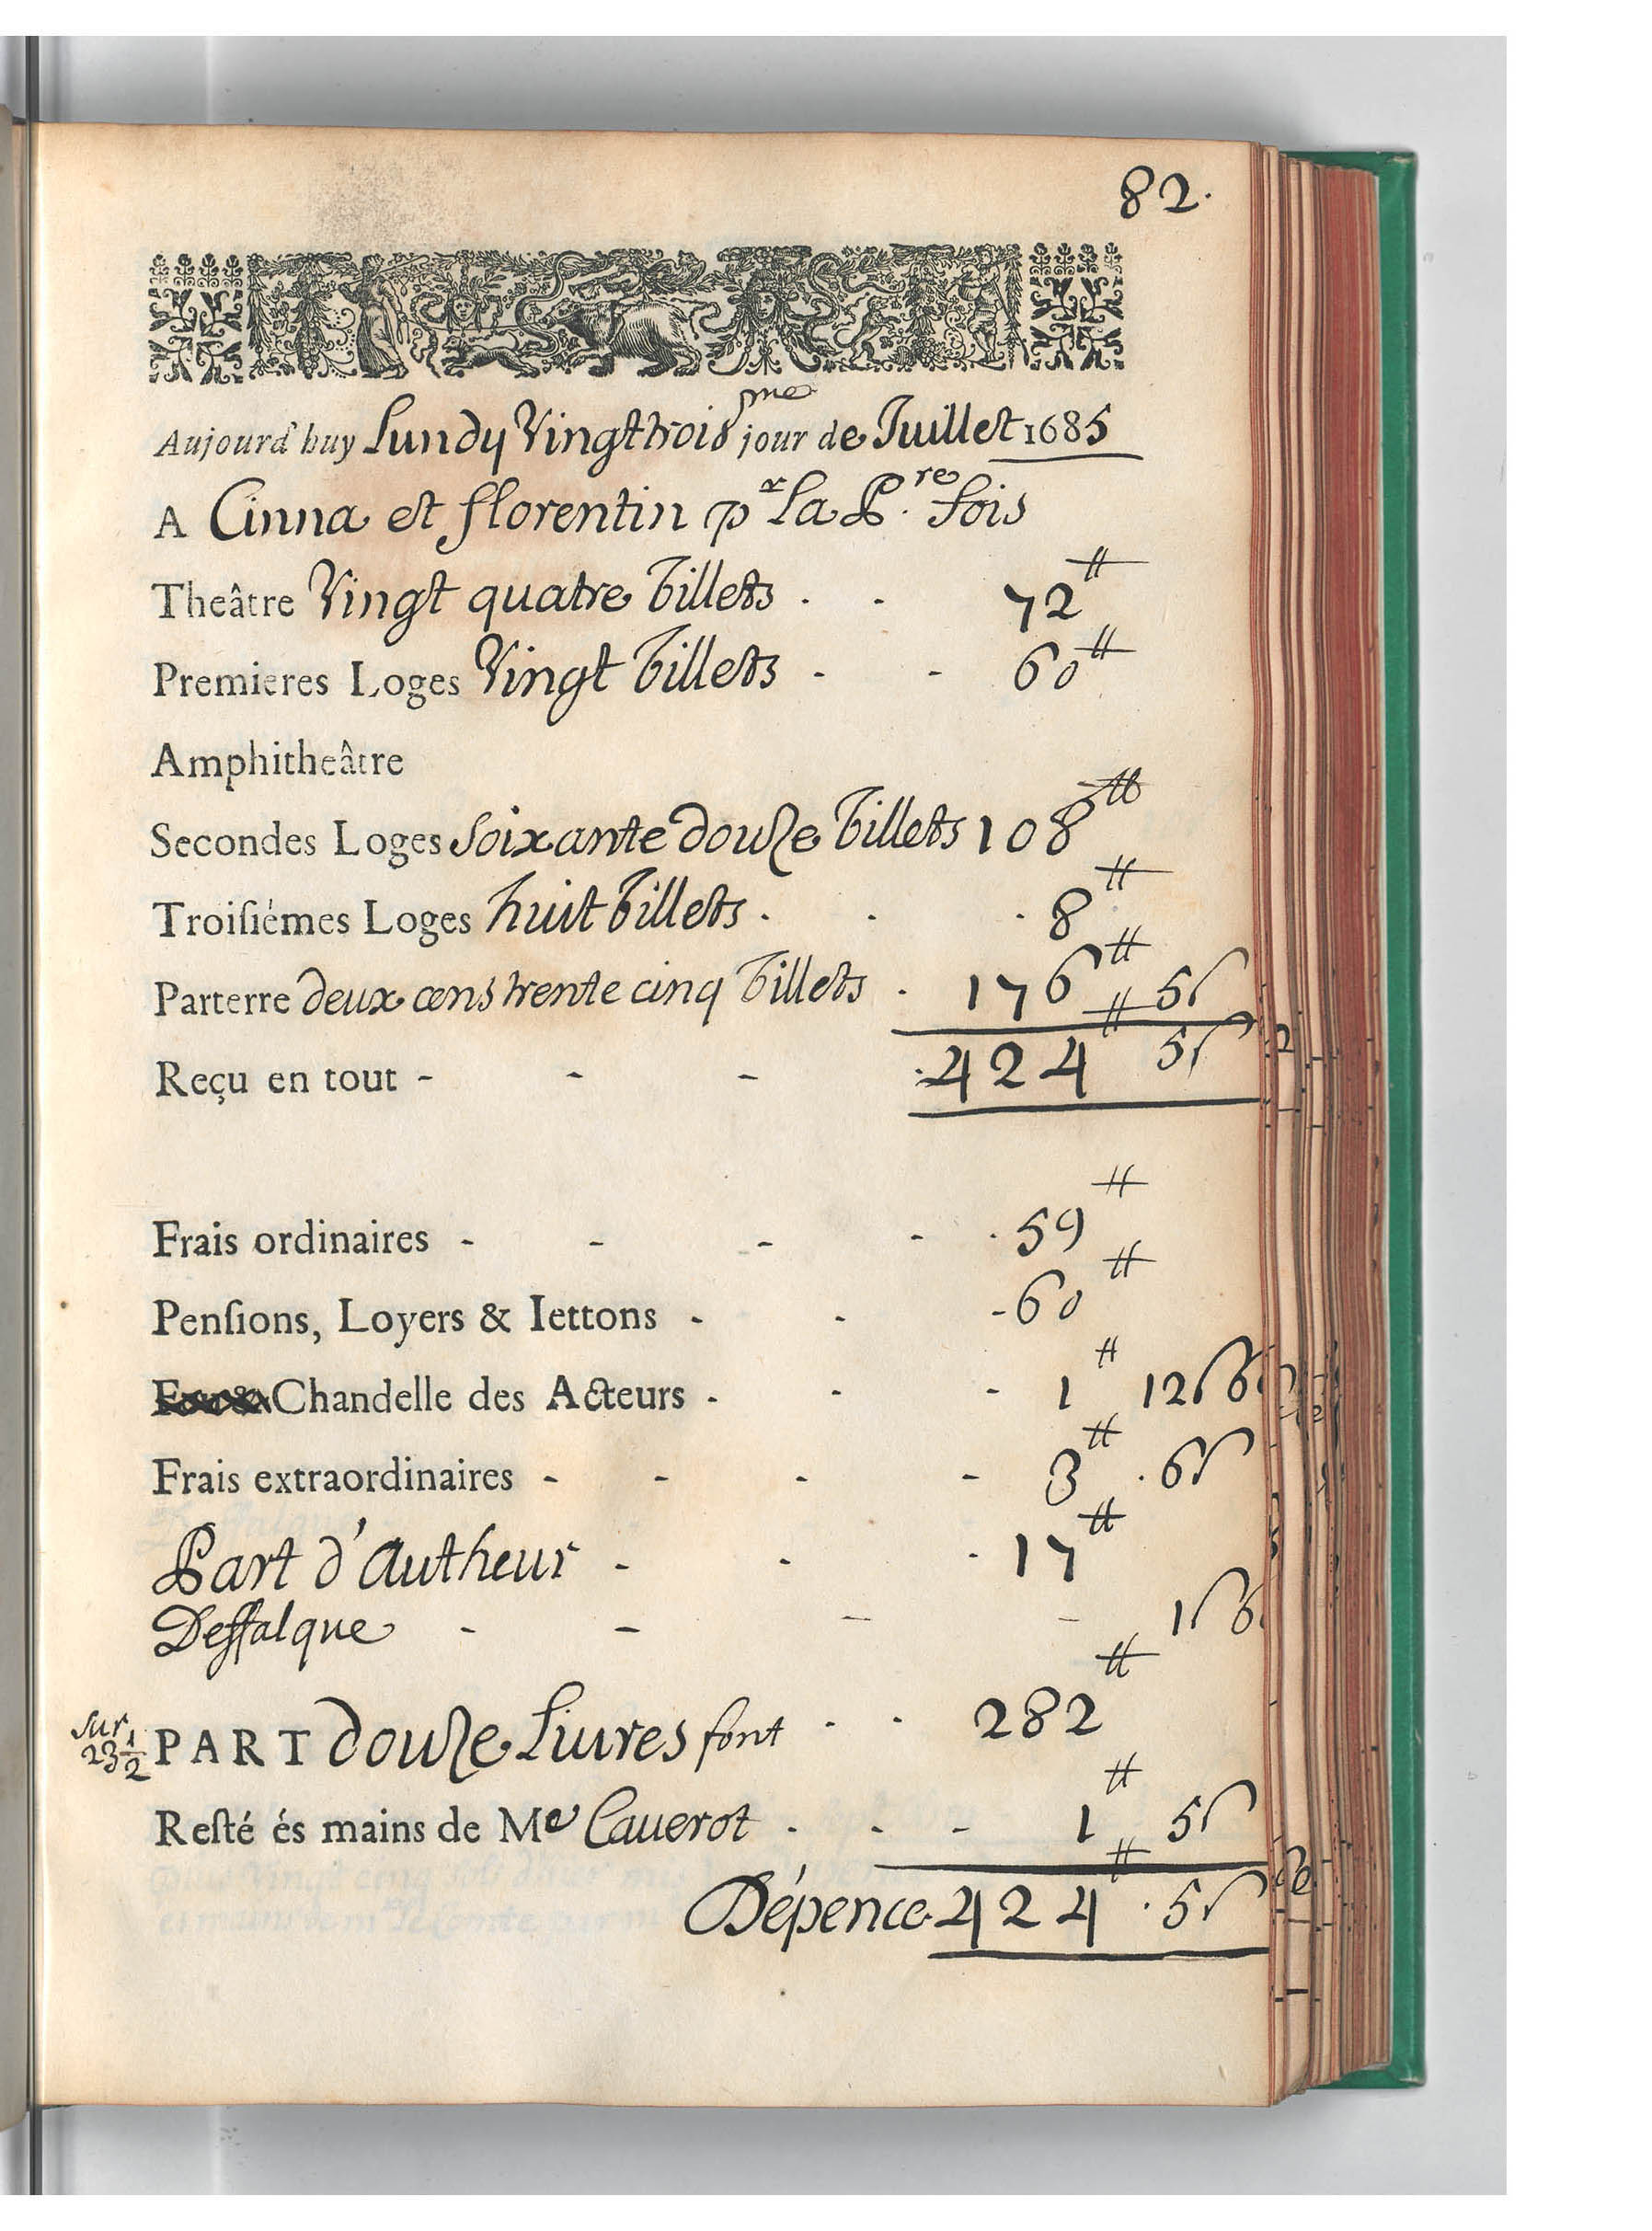 82.
Aujourd'huy Lundy Vingt trois^me jour de Juillet 1685
A Cinna et florentin p^r La P.^re fois
Theâtre Vingt quatre billets . . 72^tt
Premieres Loges Vingt billets - - 60^tt
Amphitheâtre
Secondes Loges Soixante douze billets 108^tt
Troisiémes Loges huit billets . . . 8^tt
Parterre deux cens trente cinq billets . 176^tt 5s
Reçu en tout - - - .424^tt 5s
Frais ordinaires - - - - . 59^tt
Pensions, Loyers & Iettons - - - 60^tt
Chandelle des Acteurs - - - 1^tt 12s 6
Frais extraordinaires - - - - 3^tt . 6s
Part d'Autheur - - - 17^tt
Deffalque - - - - 1s 6
Sur 23 1/2 PART douze Liures font . . 282^tt
Resté és mains de M^e Cauerot . . - 1^tt 5s
Dépence 424^tt . 5s